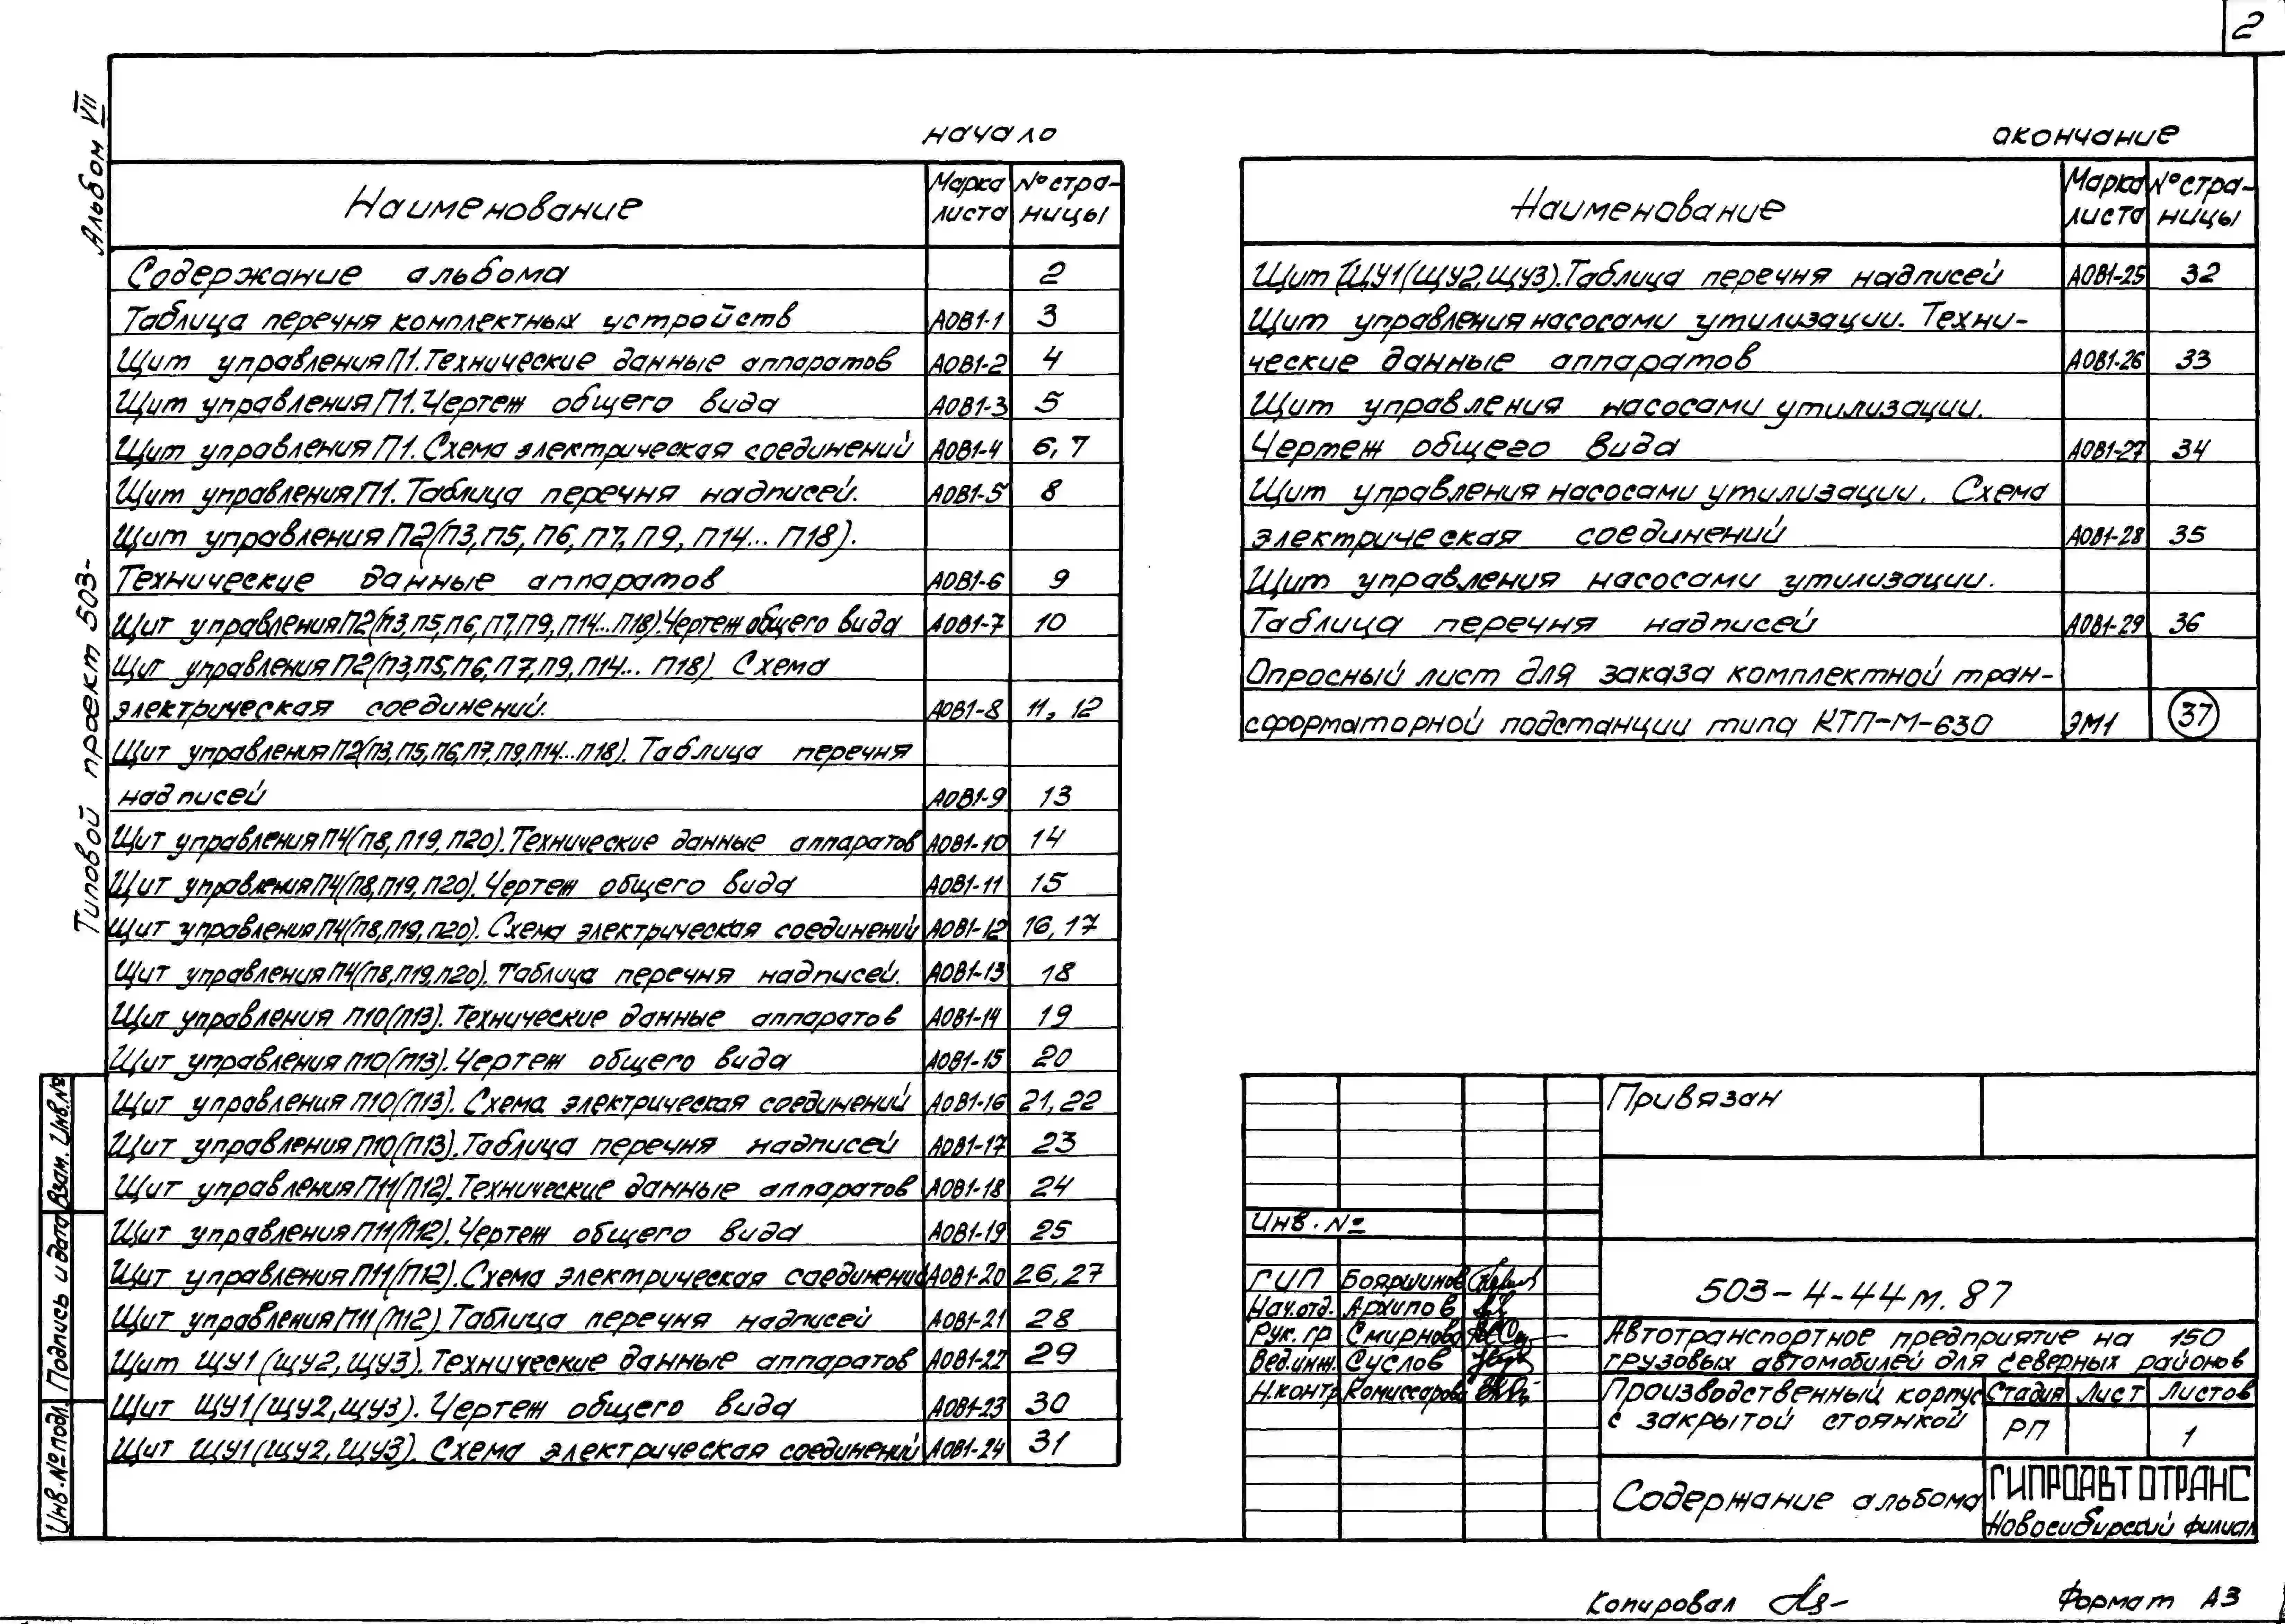 2
Альбом VII
Типовой проект 503-
начало
Наименование Марка листа № страницы
Содержание альбома 2
Таблица перечня комплектных устройств АОВ1-1 3
Щит управления П1. Технические данные аппаратов АОВ1-2 4
Щит управления П1. Чертеж общего вида АОВ1-3 5
Щит управления П1. Схема электрическая соединений АОВ1-4 6, 7
Щит управления П1. Таблица перечня надписей. АОВ1-5 8
Щит управления П2(П3, П5, П6, П7, П9, П14... П18).
Технические данные аппаратов АОВ1-6 9
Щит управления П2(П3, П5, П6, П7, П9, П14... П18). Чертеж общего вида АОВ1-7 10
Щит управления П2(П3, П5, П6, П7, П9, П14... П18) Схема
электрическая соединений. АОВ1-8 11, 12
Щит управления П2(П3, П5, П6, П7, П9, П14... П18). Таблица перечня
надписей АОВ1-9 13
Щит управления П4(П8, П19, П20). Технические данные аппаратов АОВ1-10 14
Щит управления П4(П8, П19, П20). Чертеж общего вида АОВ1-11 15
Щит управления П4(П8, П19, П20). Схема электрическая соединений АОВ1-12 16, 17
Щит управления П4(П8, П19, П20). Таблица перечня надписей. АОВ1-13 18
Щит управления П10(П13). Технические данные аппаратов АОВ1-14 19
Щит управления П10(П13). Чертеж общего вида АОВ1-15 20
Щит управления П10(П13). Схема электрическая соединений АОВ1-16 21, 22
Щит управления П10(П13). Таблица перечня надписей АОВ1-17 23
Щит управления П11(П12). Технические данные аппаратов АОВ1-18 24
Щит управления П11(П12). Чертеж общего вида АОВ1-19 25
Щит управления П11(П12). Схема электрическая соединений АОВ1-20 26, 27
Щит управления П11(П12). Таблица перечня надписей АОВ1-21 28
Щит ЩУ1(ЩУ2, ЩУ3). Технические данные аппаратов АОВ1-22 29
Щит ЩУ1(ЩУ2, ЩУ3). Чертеж общего вида АОВ1-23 30
Щит ЩУ1(ЩУ2, ЩУ3). Схема электрическая соединений АОВ1-24 31
окончание
Наименование Марка листа № страницы
Щит (ЩУ1(ЩУ2, ЩУ3). Таблица перечня надписей АОВ1-25 32
Щит управления насосами утилизации. Техни-
ческие данные аппаратов АОВ1-26 33
Щит управления насосами утилизации.
Чертеж общего вида АОВ1-27 34
Щит управления насосами утилизации. Схема
электрическая соединений АОВ1-28 35
Щит управления насосами утилизации.
Таблица перечня надписей АОВ1-29 36
Опросный лист для заказа комплектной тран-
сформаторной подстанции типа КТП-М-630 ЭМ1 37
Привязан
Инв. №
ГИП Бояршинов
Нач.отд. Архипов
Рук. гр Смирнова
Вед.инж. Суслов
Н.контр Комиссарова
503-4-44м.87
Автотранспортное предприятие на 150
грузовых автомобилей для северных районов
Производственный корпус
с закрытой стоянкой
Стадия Лист Листов
РП 1
Содержание альбома
ГИПРОАВТОТРАНС
Новосибирский филиал
Взам. Инв.№
Подпись и дата
Инв.№ подл.
Копировал
Формат А3